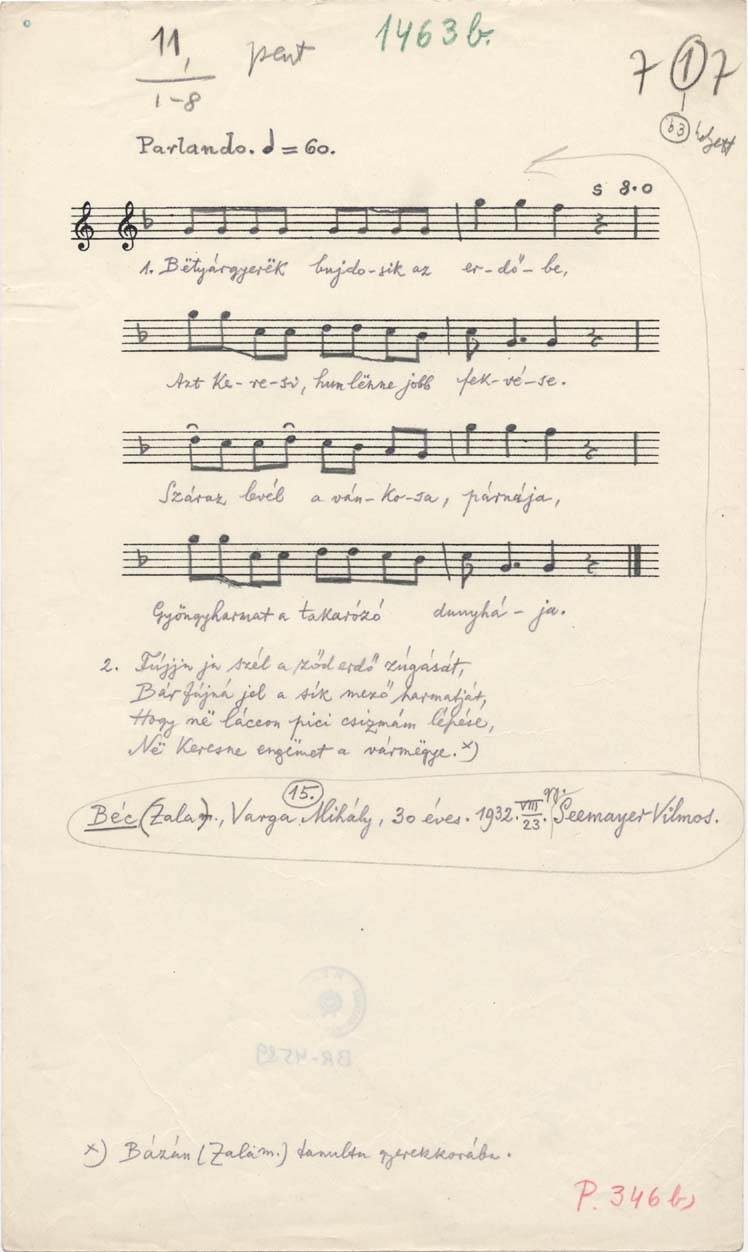 11, pent 1463 b. 7 1 7
1-8
b3 helyett
Parlando. = 60.
s 8.0
1. Bëtyárgyerëk bujdo-sik az er-dő-be,
Azt ke-re-si, hun lënne jobb fek-vé-se.
Száraz levél a ván-ko-sa, párnája,
Gyöngyharmat a takarózó dunyhá-ja.
2. Fújja ja szél a ződ erdő zúgását,
Bár fújná jel a sik mező harmatját,
Hogy në láccon pici csizmám lépése,
Në keresne engëmet a vármëgye. x)
15.
Béc (Zala m., Varga Mihály, 30 éves. 1932. VIII/23. gy. Seemayer Vilmos.
BR-4529
x) Bázán (Zala m.) tanulta gyerekkorába.
P. 346 b,